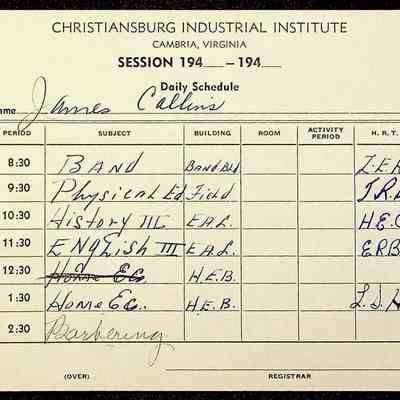 CHRISTIANSBURG INDUSTRIAL INSTITUTE
CAMBRIA, VIRGINIA
SESSION 194___—194___
Daily Schedule
ame James Collins
PERIOD SUBJECT BUILDING ROOM ACTIVITY PERIOD H. R. T.
8:30 BAND BAND Bld.
9:30 Physical Ed. Field
10:30 History III E.A.L. H.E.
11:30 ENglish III E.A.L. E.R.B
12:30 Home EC. H.E.B.
1:30 Home EC. H.E.B.
2:30 Barbering
(OVER) REGISTRAR